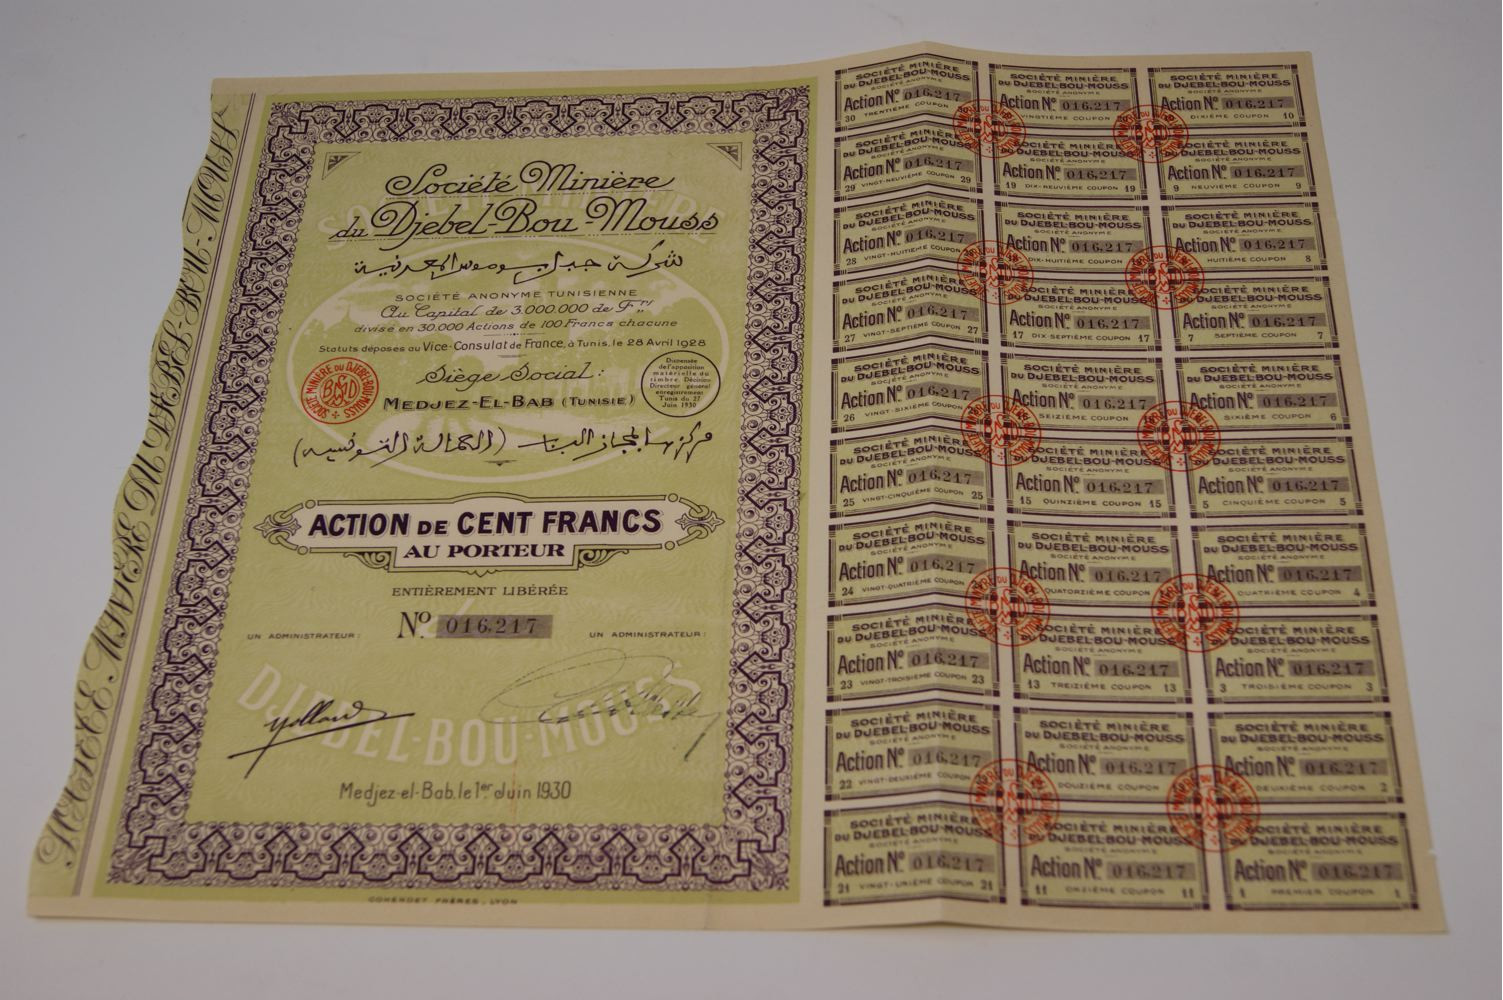 SOCIÉTÉ MINIÈRE DU DJEBEL-BOU-MOUSS
Société Minière
du Djebel-Bou Mouss
شركة جبل بوموس المعدنية
SOCIÉTÉ ANONYME TUNISIENNE
Au Capital de 3.000.000 de Frs
divisé en 30.000 Actions de 100 Francs chacune
Statuts déposés au Vice-Consulat de France, à Tunis, le 28 Avril 1928
Siège Social:
MEDJEZ-EL-BAB (TUNISIE)
SOCIÉTÉ MINIÈRE DU DJEBEL-BOU-MOUSS
Dispensée
de l'apposition
matérielle du
timbre. Décision
Directeur général
enregistrement
Tunis du 27
Juin 1930
مركزها المجاز الباب (العمالة التونسية)
ACTION DE CENT FRANCS
AU PORTEUR
ENTIÈREMENT LIBÉRÉE
UN ADMINISTRATEUR:
No 016.217
UN ADMINISTRATEUR:
DJEBEL-BOU-MOUSS
Medjez-el-Bab, le 1er Juin 1930
COHENDET FRÈRES, LYON
SOCIÉTÉ MINIÈRE
DU DJEBEL-BOU-MOUSS
SOCIÉTÉ ANONYME
Action No 016.217
30 TRENTIÈME COUPON
SOCIÉTÉ MINIÈRE
DU DJEBEL-BOU-MOUSS
SOCIÉTÉ ANONYME
Action No 016.217
VINGTIÈME COUPON 20
SOCIÉTÉ MINIÈRE
DU DJEBEL-BOU-MOUSS
SOCIÉTÉ ANONYME
Action No 016.217
DIXIÈME COUPON 10
SOCIÉTÉ MINIÈRE
DU DJEBEL-BOU-MOUSS
SOCIÉTÉ ANONYME
Action No 016.217
29 VINGT-NEUVIÈME COUPON 29
SOCIÉTÉ MINIÈRE
DU DJEBEL-BOU-MOUSS
SOCIÉTÉ ANONYME
Action No 016.217
19 DIX-NEUVIÈME COUPON 19
SOCIÉTÉ MINIÈRE
DU DJEBEL-BOU-MOUSS
SOCIÉTÉ ANONYME
Action No 016.217
9 NEUVIÈME COUPON 9
SOCIÉTÉ MINIÈRE
DU DJEBEL-BOU-MOUSS
SOCIÉTÉ ANONYME
Action No 016.217
28 VINGT-HUITIÈME COUPON
SOCIÉTÉ MINIÈRE
DU DJEBEL-BOU-MOUSS
SOCIÉTÉ ANONYME
Action No 016.217
DIX-HUITIÈME COUPON
SOCIÉTÉ MINIÈRE
DU DJEBEL-BOU-MOUSS
SOCIÉTÉ ANONYME
Action No 016.217
HUITIÈME COUPON 8
SOCIÉTÉ MINIÈRE
DU DJEBEL-BOU-MOUSS
SOCIÉTÉ ANONYME
Action No 016.217
27 VINGT-SEPTIÈME COUPON 27
SOCIÉTÉ MINIÈRE
DU DJEBEL-BOU-MOUSS
SOCIÉTÉ ANONYME
Action No 016.217
17 DIX-SEPTIÈME COUPON 17
SOCIÉTÉ MINIÈRE
DU DJEBEL-BOU-MOUSS
SOCIÉTÉ ANONYME
Action No 016.217
7 SEPTIÈME COUPON 7
SOCIÉTÉ MINIÈRE
DU DJEBEL-BOU-MOUSS
SOCIÉTÉ ANONYME
Action No 016.217
26 VINGT-SIXIÈME COUPON
SOCIÉTÉ MINIÈRE
DU DJEBEL-BOU-MOUSS
SOCIÉTÉ ANONYME
Action No 016.217
SEIZIÈME COUPON
SOCIÉTÉ MINIÈRE
DU DJEBEL-BOU-MOUSS
SOCIÉTÉ ANONYME
Action No 016.217
SIXIÈME COUPON 6
SOCIÉTÉ MINIÈRE
DU DJEBEL-BOU-MOUSS
SOCIÉTÉ ANONYME
Action No 016.217
25 VINGT-CINQUIÈME COUPON 25
SOCIÉTÉ MINIÈRE
DU DJEBEL-BOU-MOUSS
SOCIÉTÉ ANONYME
Action No 016.217
15 QUINZIÈME COUPON 15
SOCIÉTÉ MINIÈRE
DU DJEBEL-BOU-MOUSS
SOCIÉTÉ ANONYME
Action No 016.217
5 CINQUIÈME COUPON 5
SOCIÉTÉ MINIÈRE
DU DJEBEL-BOU-MOUSS
SOCIÉTÉ ANONYME
Action No 016.217
24 VINGT-QUATRIÈME COUPON
SOCIÉTÉ MINIÈRE
DU DJEBEL-BOU-MOUSS
SOCIÉTÉ ANONYME
Action No 016.217
QUATORZIÈME COUPON
SOCIÉTÉ MINIÈRE
DU DJEBEL-BOU-MOUSS
SOCIÉTÉ ANONYME
Action No 016.217
QUATRIÈME COUPON 4
SOCIÉTÉ MINIÈRE
DU DJEBEL-BOU-MOUSS
SOCIÉTÉ ANONYME
Action No 016.217
23 VINGT-TROISIÈME COUPON 23
SOCIÉTÉ MINIÈRE
DU DJEBEL-BOU-MOUSS
SOCIÉTÉ ANONYME
Action No 016.217
13 TREIZIÈME COUPON 13
SOCIÉTÉ MINIÈRE
DU DJEBEL-BOU-MOUSS
SOCIÉTÉ ANONYME
Action No 016.217
3 TROISIÈME COUPON 3
SOCIÉTÉ MINIÈRE
DU DJEBEL-BOU-MOUSS
SOCIÉTÉ ANONYME
Action No 016.217
22 VINGT-DEUXIÈME COUPON
SOCIÉTÉ MINIÈRE
DU DJEBEL-BOU-MOUSS
SOCIÉTÉ ANONYME
Action No 016.217
DOUZIÈME COUPON
SOCIÉTÉ MINIÈRE
DU DJEBEL-BOU-MOUSS
SOCIÉTÉ ANONYME
Action No 016.217
DEUXIÈME COUPON 2
SOCIÉTÉ MINIÈRE
DU DJEBEL-BOU-MOUSS
SOCIÉTÉ ANONYME
Action No 016.217
21 VINGT-UNIÈME COUPON 21
SOCIÉTÉ MINIÈRE
DU DJEBEL-BOU-MOUSS
SOCIÉTÉ ANONYME
Action No 016.217
11 ONZIÈME COUPON 11
SOCIÉTÉ MINIÈRE
DU DJEBEL-BOU-MOUSS
SOCIÉTÉ ANONYME
Action No 016.217
1 PREMIER COUPON 1